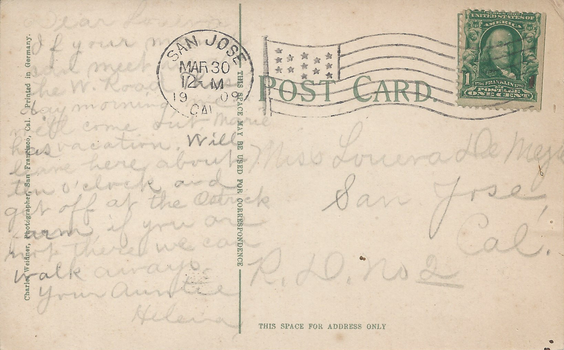 Dear Louera
If your m
meet
the W. Road
day morning
will come but Marie
has vacation. Will
leave here about
ten o'clock and
get off at the
farm if you are
not there we can
walk
Your Auntie
Helena
Charles Weidner, Photographer, San Francisco, Cal. Printed in Germany.
SAN JOSE
MAR 30
12 M
1909
CAL.
THIS SPACE MAY BE USED FOR CORRESPONDENCE
POST CARD
UNITED STATES OF AMERICA
1
FRANKLIN
POSTAGE
ONE CENT
Miss Louera De
San Jose,
Cal.
R. D. No 2
THIS SPACE FOR ADDRESS ONLY